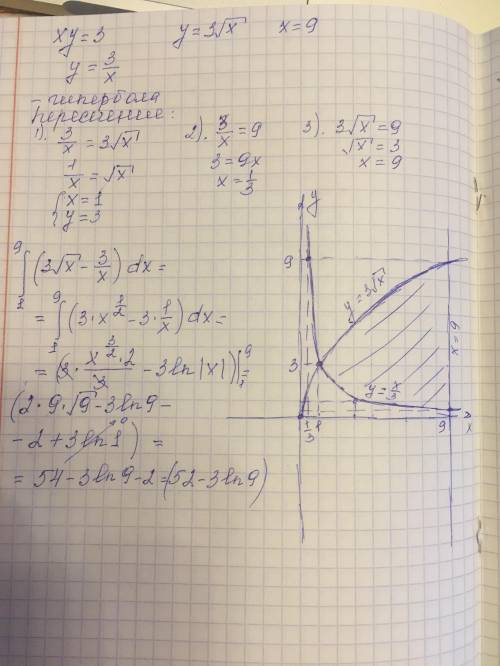 xy=3   y=3√x   x=9
y=3/x
- гипербола
Пересечение:
1). 3/x=3√x   2). 3/x=9   3). 3√x=9
1/x=√x   3=9x   √x=3
{x=1   x=1/3   x=9
{y=3
∫₁⁹(3√x-3/x)dx=
=∫₁⁹(3·x^(1/2)-3·1/x)dx=
=(3·x^(3/2)·2/3-3ln|x|)|₁⁹=
(2·9·√9-3ln9-
-2+3ln1⁰)=
=54-3ln9-2=(52-3ln9)
y
9
y=3√x
x=9
3
y=x/3
1/3 1 9 x